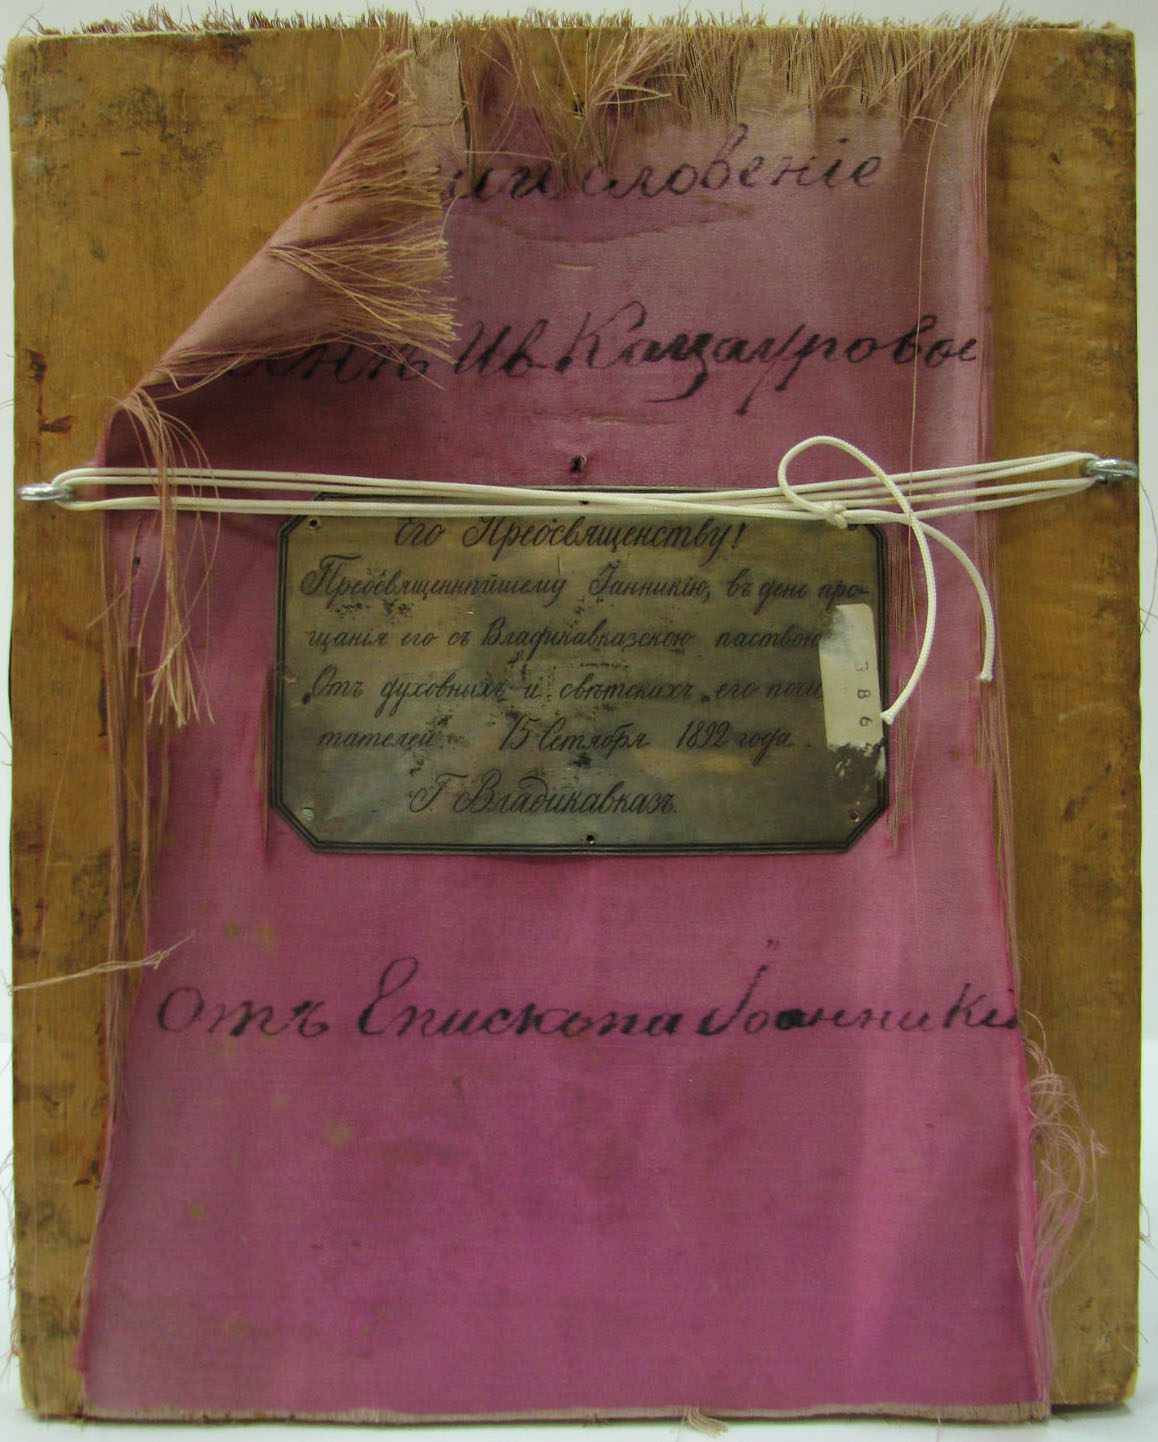 словеніе
Ив Кацауровой
Его Преосвященству!
Преосвященнѣйшему Іанникію, въ день про-
щанія его съ Владикавказскою паствою
Отъ духовныхъ и свѣтскихъ его почи
тателей. 15 Сетября 1892 года.
Г. Владикавказъ.
386
Отъ Епископа Іоанникі